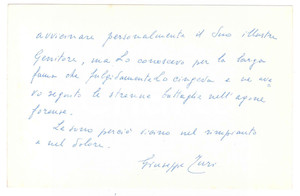 avvicinare personalmente il Suo illustre
Genitore, ma Lo conoscevo per la larga
fama che fulgidamente Lo cingeva e ne ave
vo seguito le strenue battaglie nell'agone
forense.
Le sono perciò vicino nel rimpianto
e nel dolore.
Giuseppe